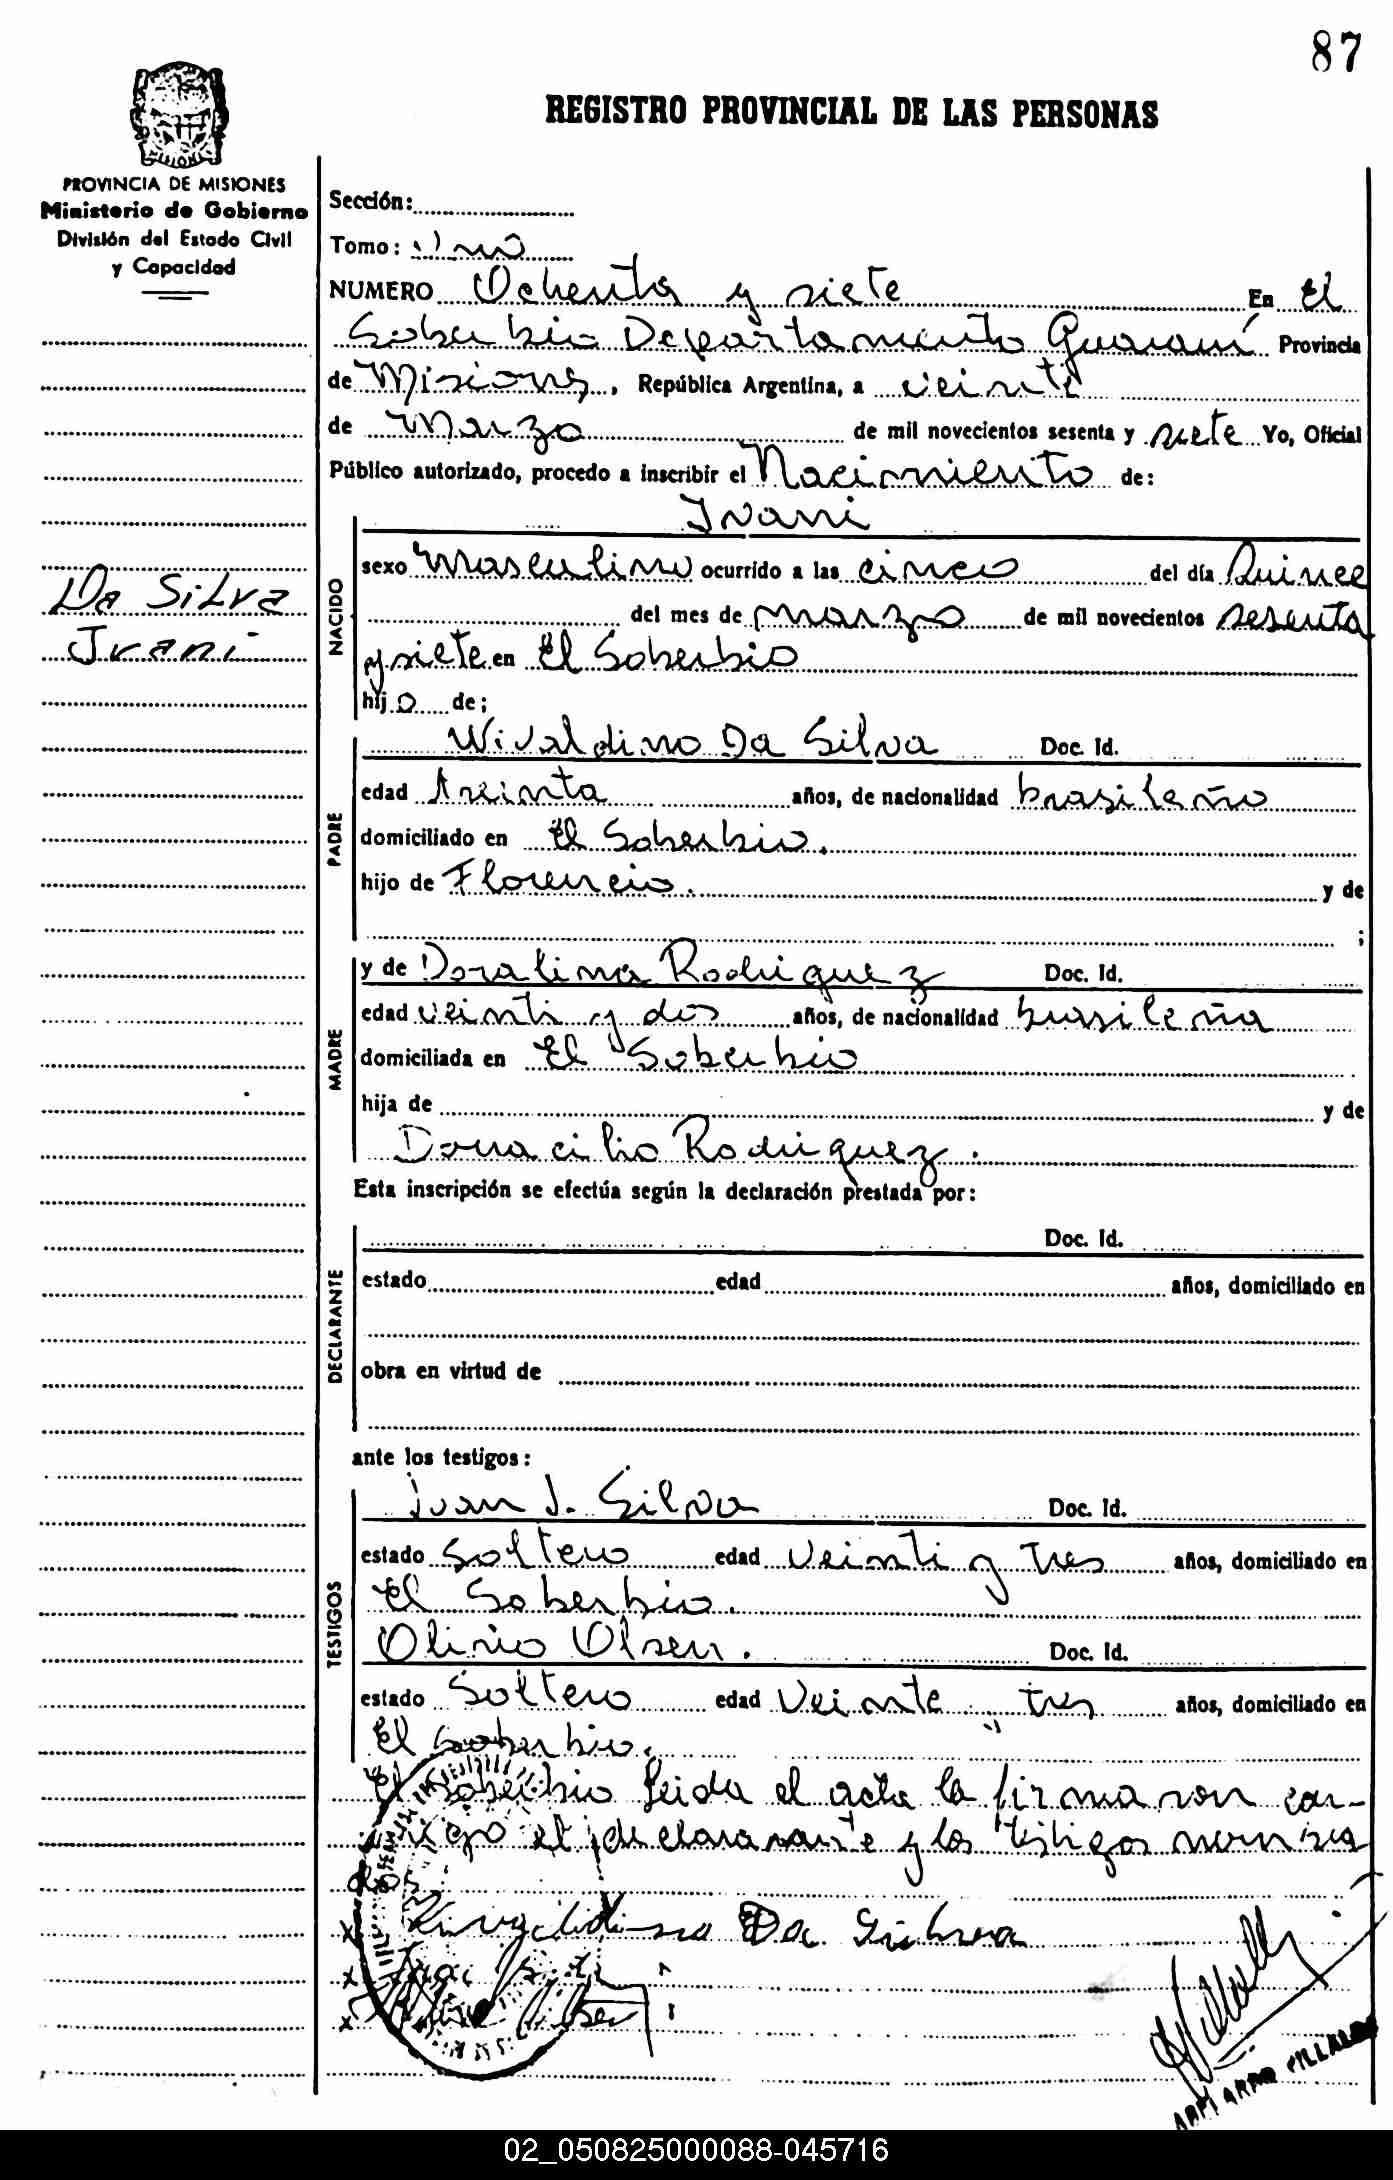 87
REGISTRO PROVINCIAL DE LAS PERSONAS
MISIONES
PROVINCIA DE MISIONES
Ministerio de Gobierno
División del Estado Civil
y Capacidad
Da Silva
Ivani
Sección:
Tomo: Uno
NUMERO Ochenta y siete En El
Soberbio Departamento Guaraní Provincia
de Misiones, República Argentina, a veinte
de Marzo de mil novecientos sesenta y siete Yo, Oficial
Público autorizado, procedo a inscribir el Nacimiento de:
Ivani
NACIDO
sexo Masculino ocurrido a las cinco del día Quince
del mes de marzo de mil novecientos sesenta
y siete en El Soberbio
hijo de;
PADRE
Wivaldino Da Silva Doc. Id.
edad treinta años, de nacionalidad brasileño
domiciliado en El Soberbio.
hijo de Florencio. y de
;
MADRE
y de Doralina Rodriguez Doc. Id.
edad veinti y dos años, de nacionalidad brasileña
domiciliada en El Soberbio
hija de y de
Dorracilio Rodriguez.
Esta inscripción se efectúa según la declaración prestada por:
DECLARANTE
Doc. Id.
estado edad años, domiciliado en
obra en virtud de
ante los testigos:
TESTIGOS
Juan J. Silva Doc. Id.
estado Soltero edad Veinti y tres años, domiciliado en
El Soberbio.
Olinio Olsen. Doc. Id.
estado Soltero edad Veinte tres años, domiciliado en
El Soberbio.
El Soberbio leida el acta la firma con
el declarante y los testigos
Da Silva
02_050825000088-045716